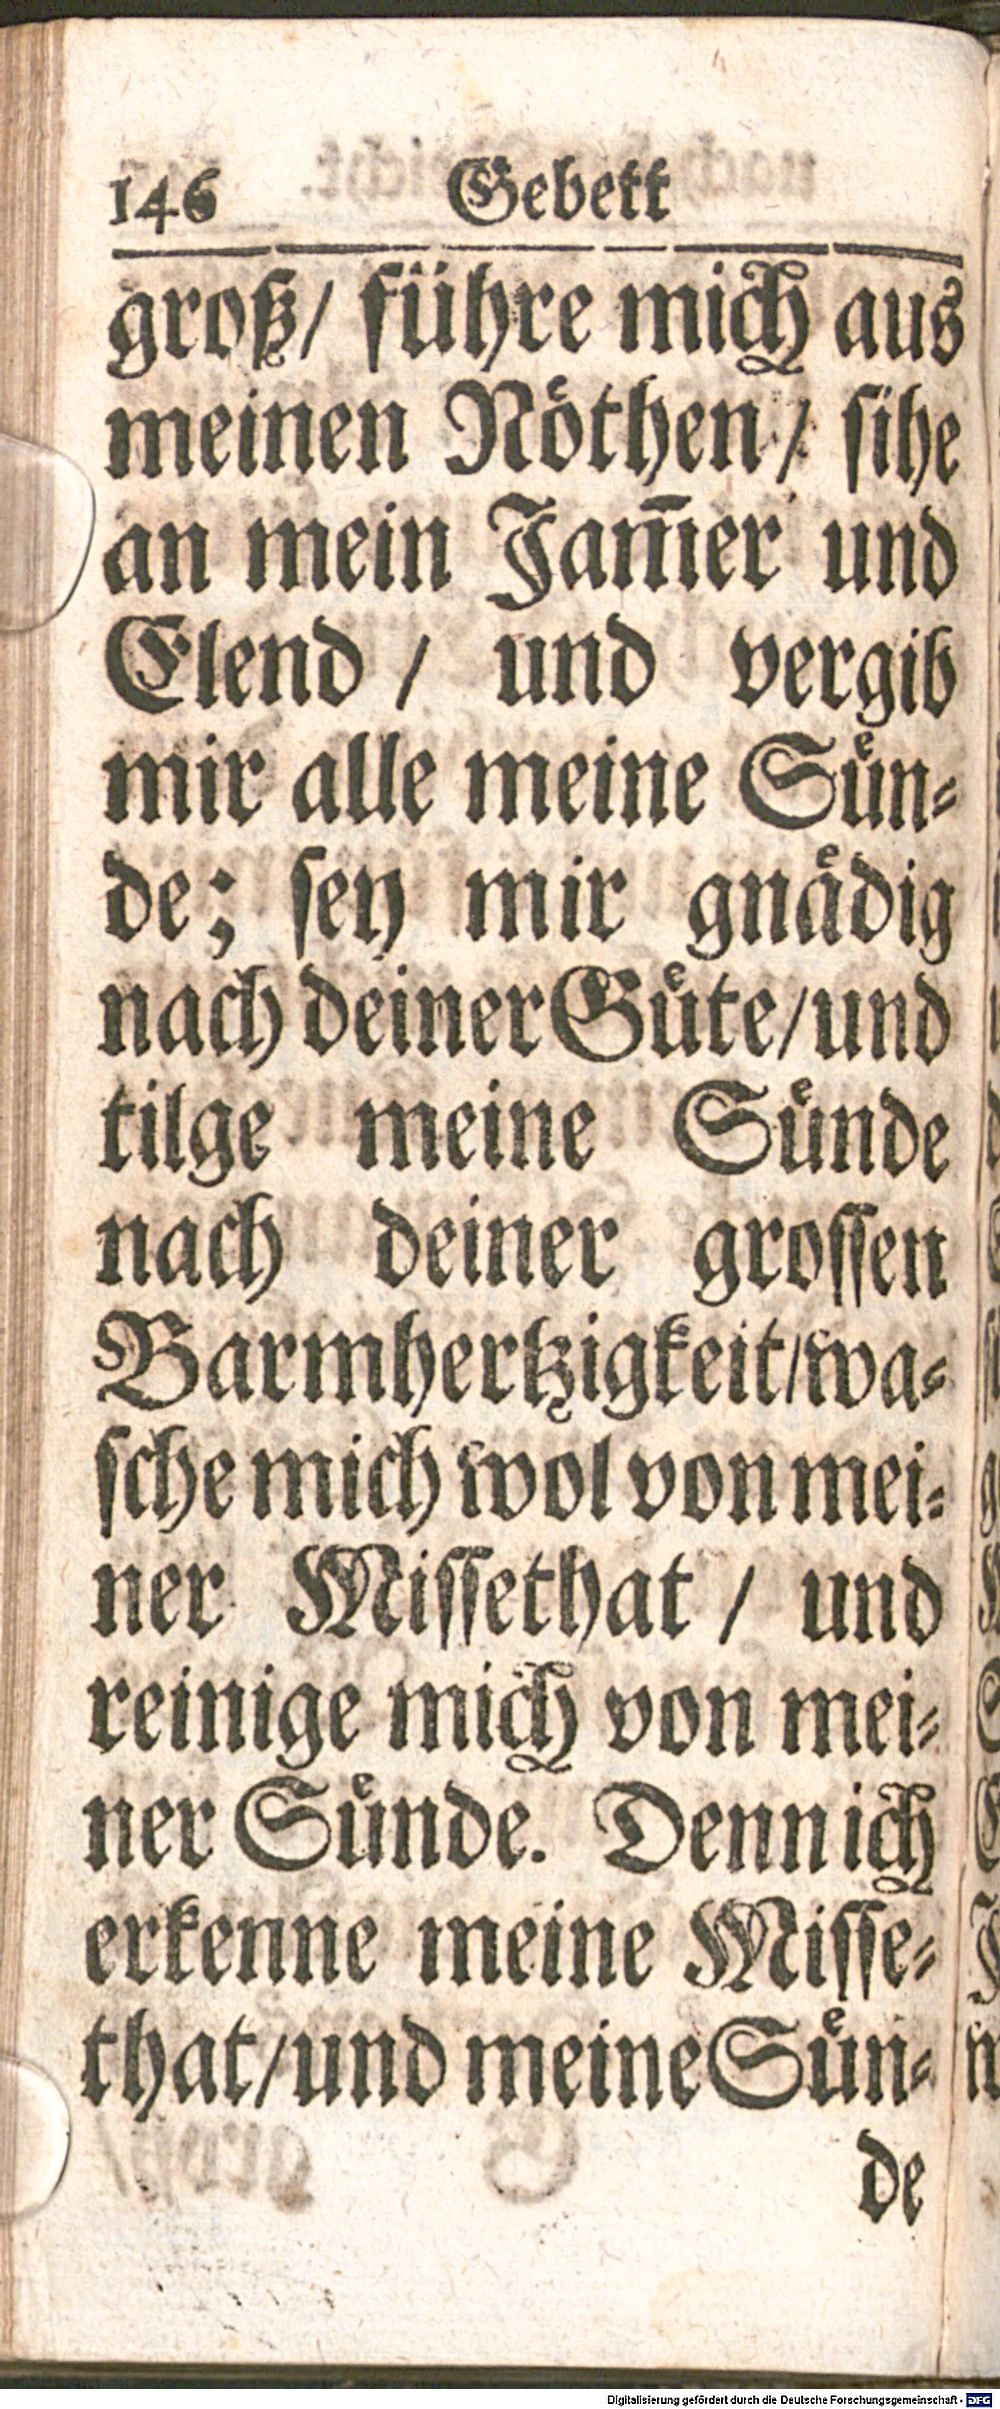 146 Gebett
groß/ führe mich aus
meinen Nöthen/ sihe
an mein Jam̄er und
Elend / und vergib
mir alle meine Suͤn⸗
de; sey mir gnaͤdig
nach deiner Guͤte/und
tilge meine Suͤnde
nach deiner grossen
Barmhertzigkeit/wa⸗
sche mich wol von mei⸗
ner Missethat / und
reinige mich von mei⸗
ner Suͤnde. Denn ich
erkenne meine Misse⸗
that/und meine Suͤn⸗
de
Digitalisierung gefördert durch die Deutsche Forschungsgemeinschaft - DFG